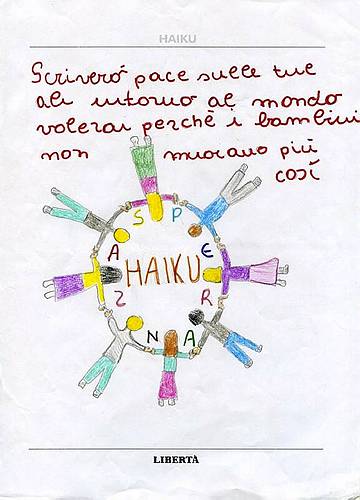 HAIKU
Scriveró pace sulle tue
ali intorno al mondo
volerai perchè i bambini
non muoiano più
così
SPERANZA
HAIKU
LIBERTÀ